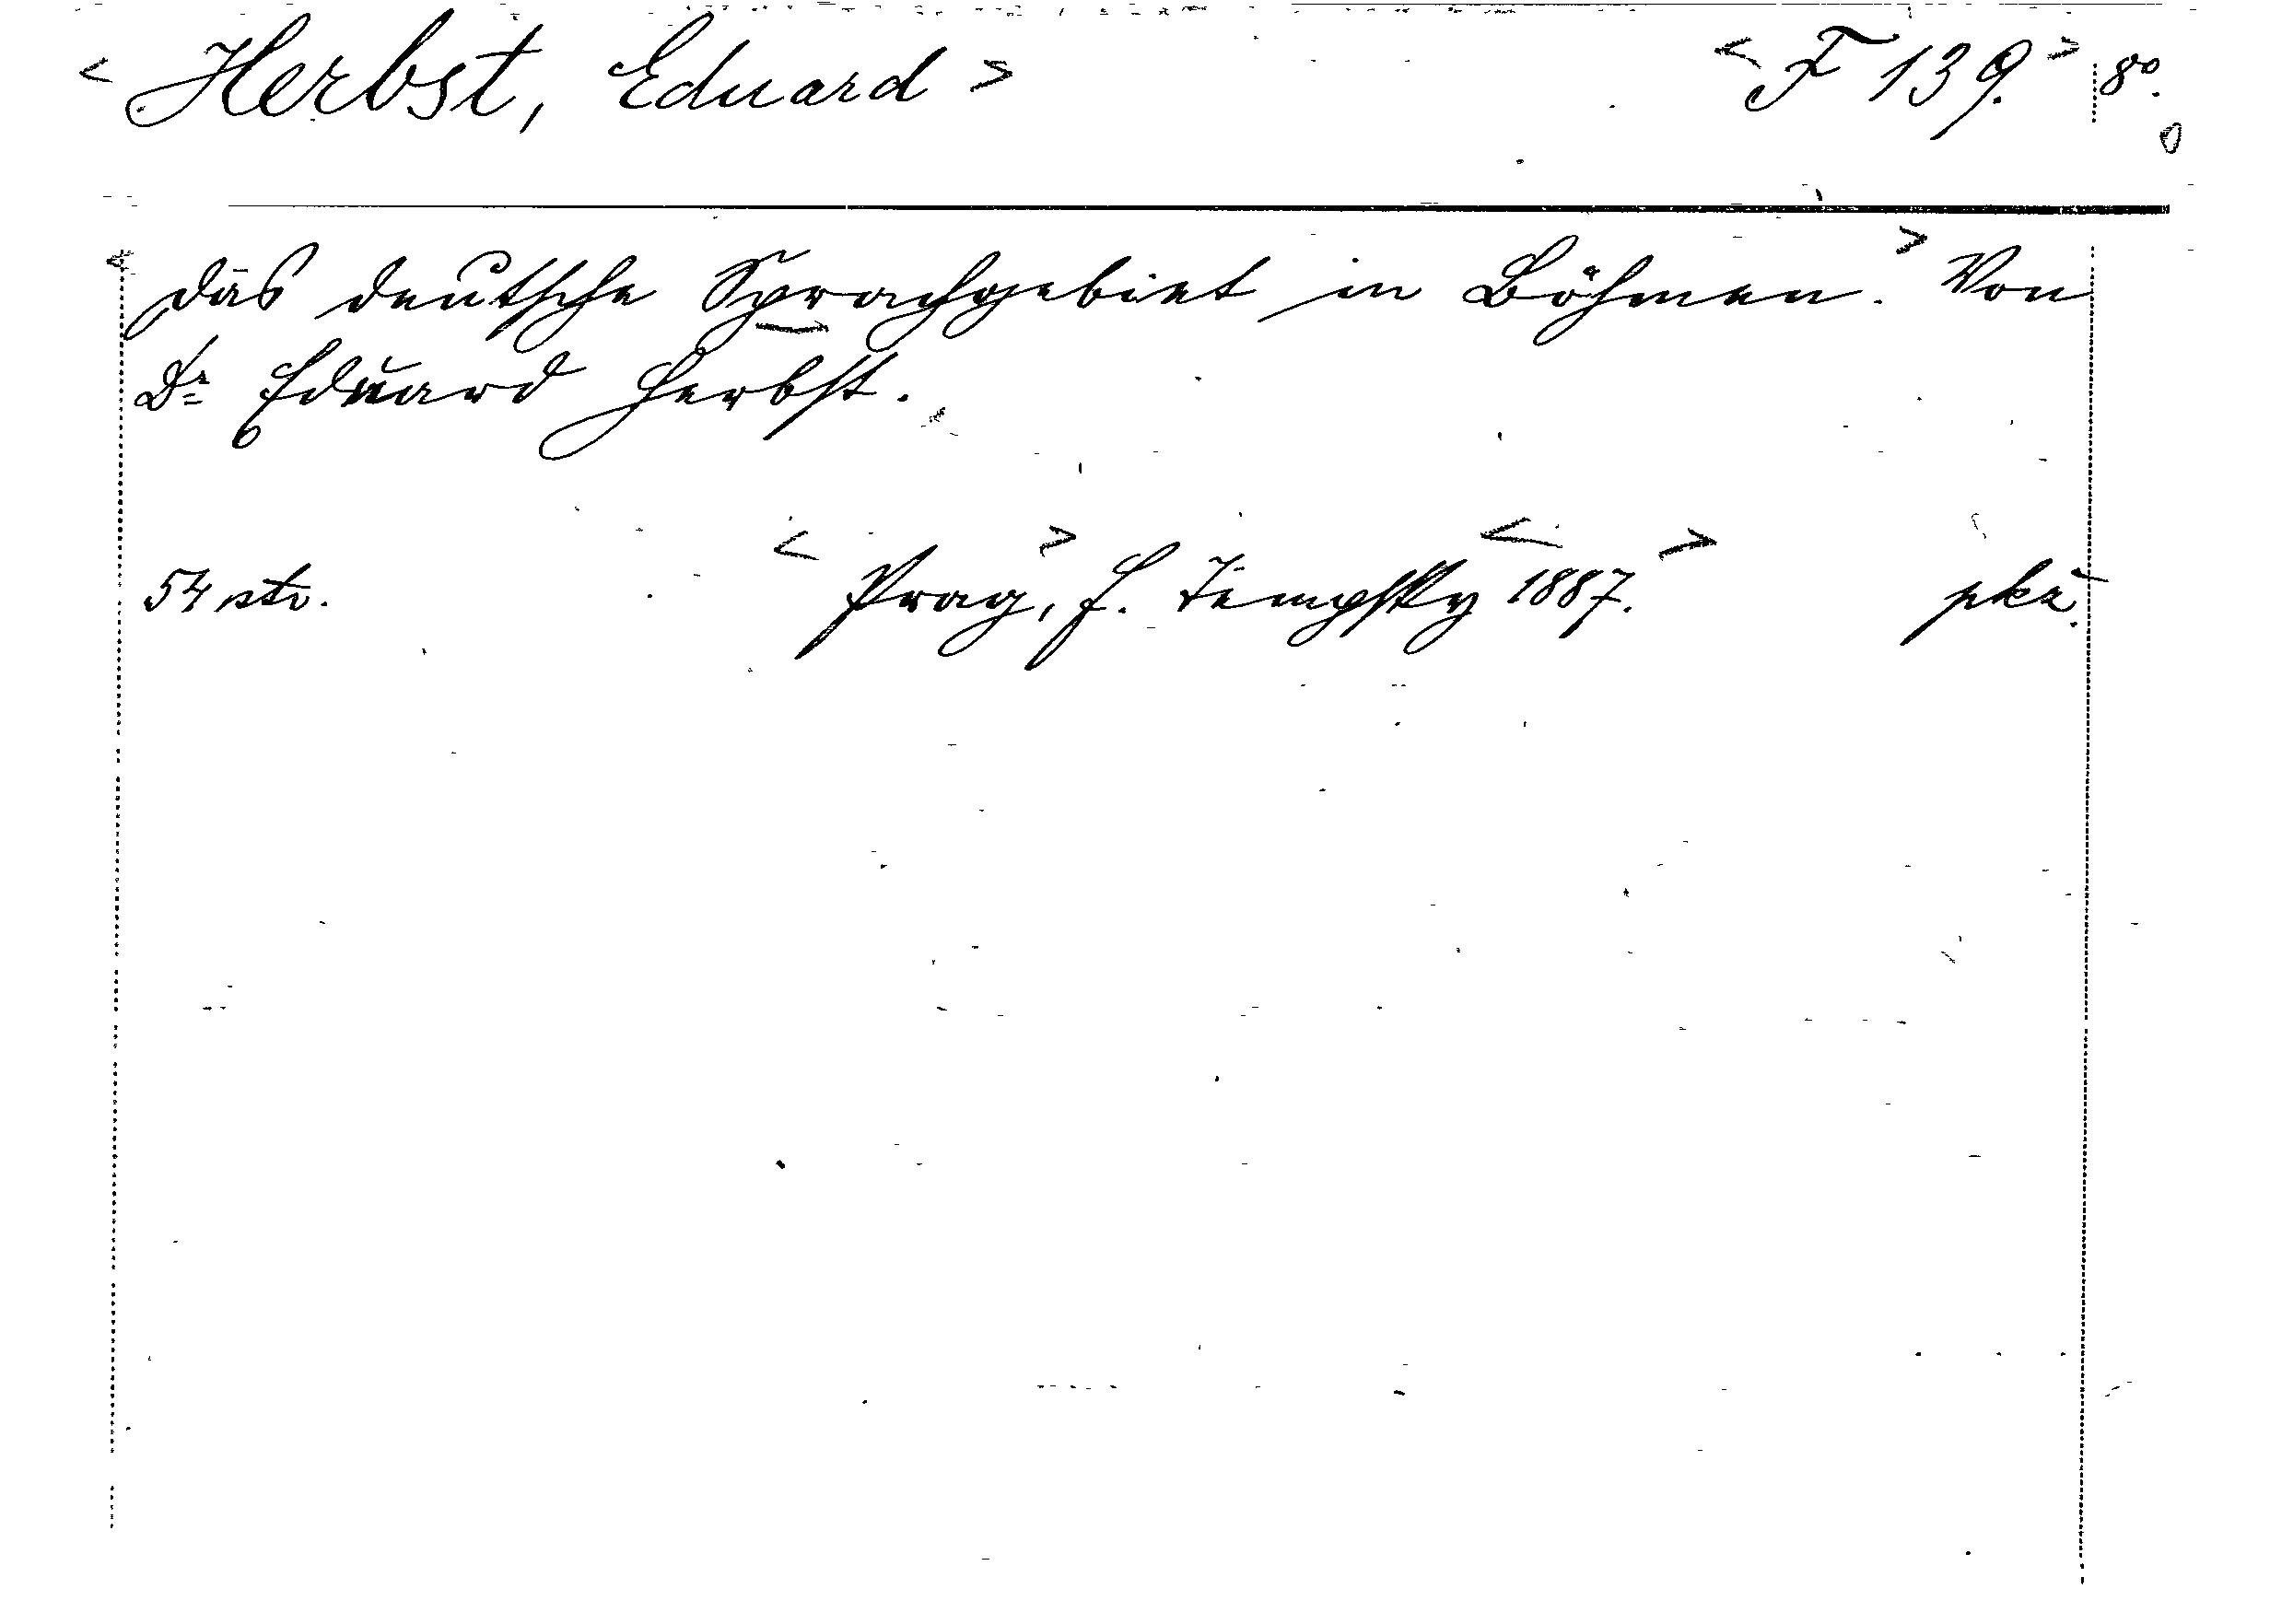 < Herbst, Eduard > < F 139. > 8°.
< Das deutsche Sprachgebiet in Böhmen. > Von
Dr Eduard Herbst.
54 str. < Prag, > F. Tempsky < 1887. > pkz.